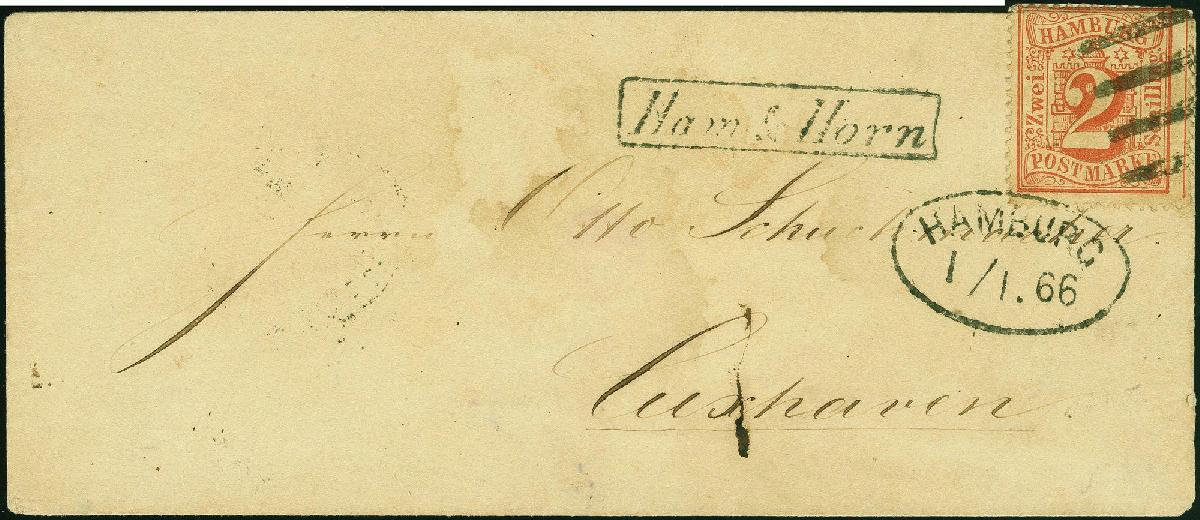 HAMBURG
Zwei
2
POSTMARKE
Ham & Horn
Herrn Otto
HAMBURG
1/1.66
Cuxhaven